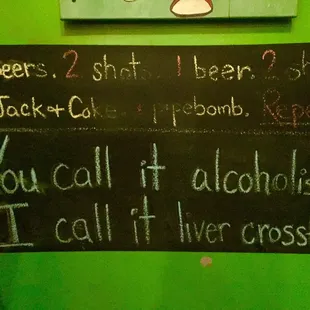 eers. 2 shots. 1 beer. 2 sh
Jack + Coke. 1 pipebomb. Repe
You call it alcoholis
I call it liver cross